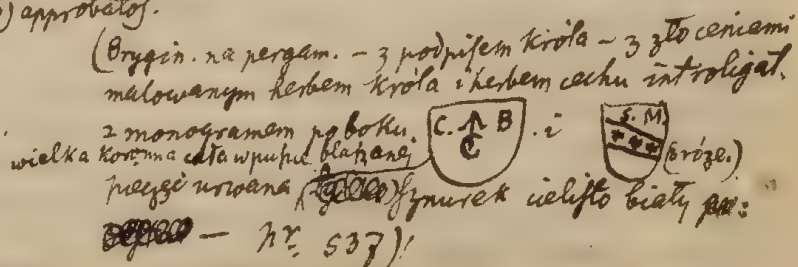 ) approbatos.
(Orygin. na pergam. – z podpisem króla – z złoceniami
malowanym herbem króla i herbem cechu introligat.
z monogramem po boku. C. B . i S. M. (3 róże.)
wielka koronna cała w puszce blaszanej
pieczęć urwana sznurek cielisto biały
— nr. 537)!